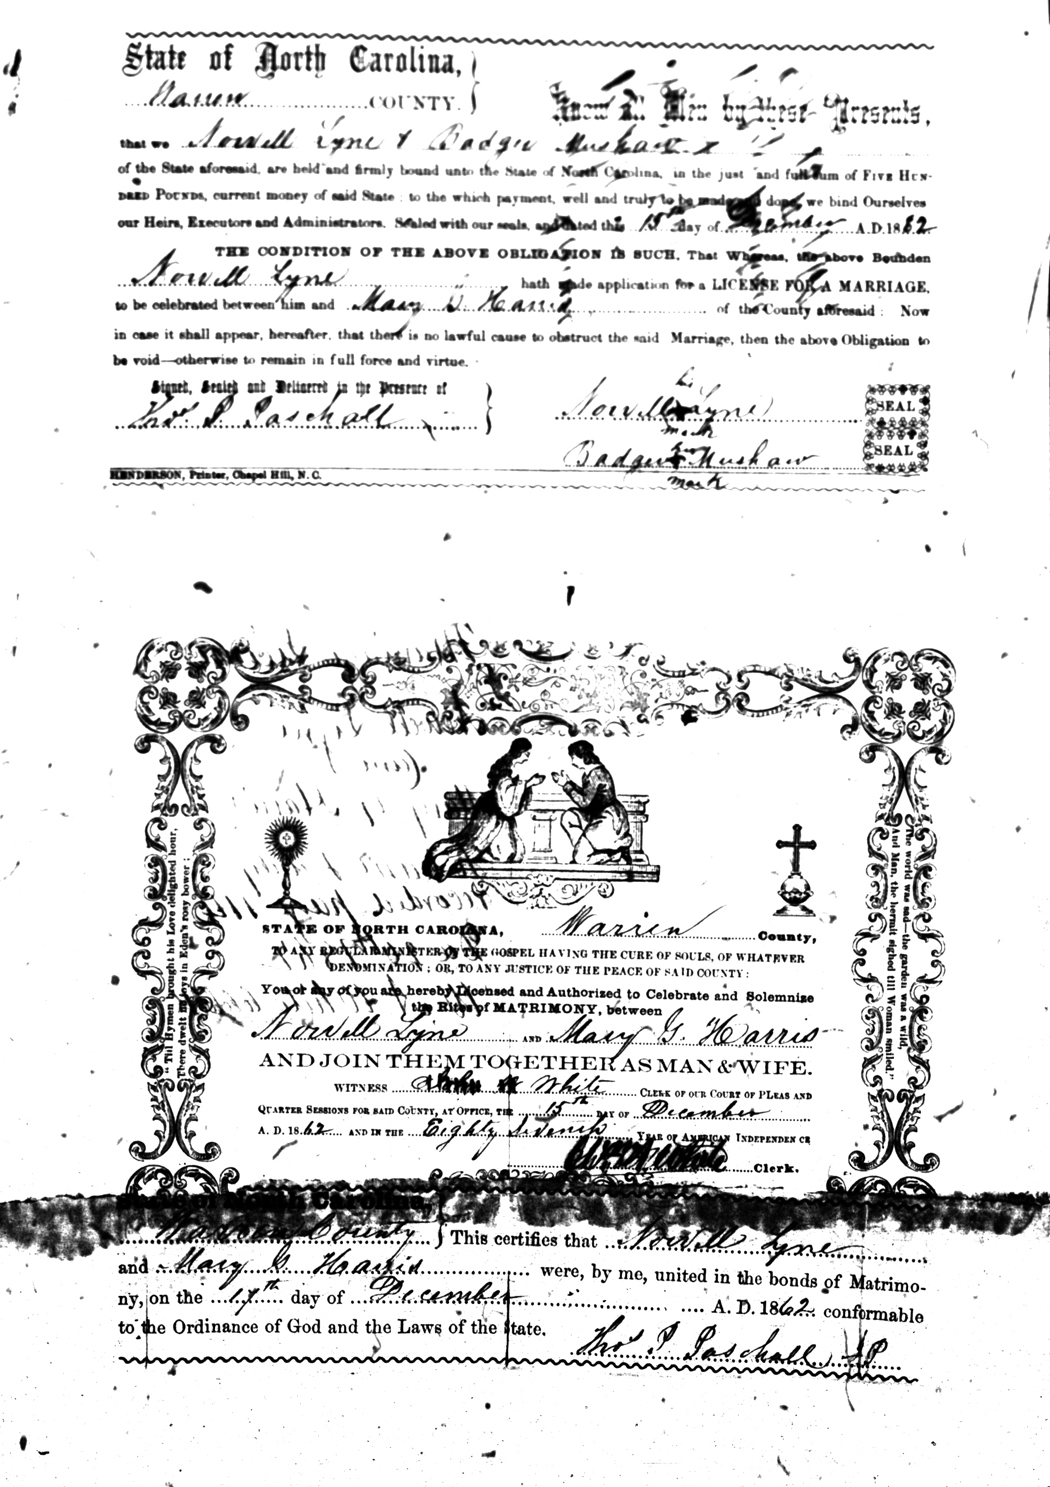 State of North Carolina,
Warren COUNTY.
Know All Men by these Presents,
that we Nowell Lyne & Badger Mushaw
of the State aforesaid, are held and firmly bound unto the State of North Carolina, in the just and full sum of FIVE HUN-
DRED POUNDS, current money of said State; to the which payment, well and truly to be made and done, we bind Ourselves
our Heirs, Executors and Administrators. Sealed with our seals, and dated this 15th day of December A.D. 1862
THE CONDITION OF THE ABOVE OBLIGATION IS SUCH, That Whereas, the above Bounden
Nowell Lyne hath made application for a LICENSE FOR A MARRIAGE,
to be celebrated between him and Mary G. Harris of the County aforesaid: Now
in case it shall appear, hereafter, that there is no lawful cause to obstruct the said Marriage, then the above Obligation to
be void—otherwise to remain in full force and virtue.
Signed, Sealed and Delivered in the Presence of
Thos. P. Paschall
his
Nowell x Lyne SEAL
mark
his
Badger x Mushaw SEAL
mark
HENDERSON, Printer, Chapel Hill, N. C.
"Till Hymen brought his Love delighted hour,
There dwelt no joys in Eden's rosy bower:
The world was sad—the garden was a wild,
And Man, the hermit sighed till Woman smiled."
STATE OF NORTH CAROLINA, Warren County,
TO ANY REGULAR MINISTER OF THE GOSPEL HAVING THE CURE OF SOULS, OF WHATEVER
DENOMINATION; OR, TO ANY JUSTICE OF THE PEACE OF SAID COUNTY:
You or any of you are hereby Licensed and Authorized to Celebrate and Solemnize
the Rites of MATRIMONY, between
Nowell Lyne AND Mary G. Harris
AND JOIN THEM TOGETHER AS MAN & WIFE.
WITNESS John W White CLERK OF OUR COURT OF PLEAS AND
QUARTER SESSIONS FOR SAID COUNTY, AT OFFICE, THE 15th DAY OF December
A. D. 1862 AND IN THE Eighty Seventh YEAR OF AMERICAN INDEPENDEN CE
Clerk.
State of North Carolina,
County } This certifies that Nowell Lyne
and Mary G Harris were, by me, united in the bonds of Matrimo-
ny, on the 17th day of December A. D. 1862 conformable
to the Ordinance of God and the Laws of the State.
Thos P Paschall JP